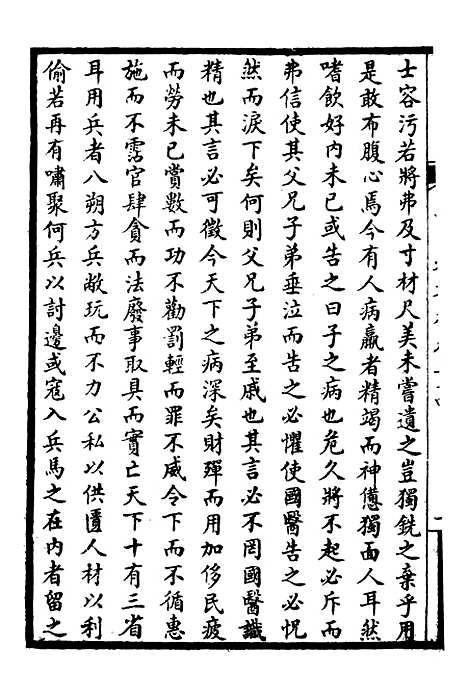 士容污若將弗及寸材尺美未嘗遺之豈獨銑之棄乎用
是敢布腹心焉今有人病羸者精竭而神憊獨面人耳然
嗜飲好内未已或告之曰子之病也危久將不起必斥而
弗信使其父兄子弟垂泣而告之必懼使國醫告之必怳
然而淚下矣何則父兄子弟至戚也其言必不罔國醫識
精也其言必可徵今天下之病深矣財殫而用加侈民疲
而勞未已賞數而功不勸罰輕而罪不威令下而不循惠
施而不霑官肆貪而法廢事取具而實亡天下十有三省
耳用兵者八朔方兵敝玩而不力公私以供匱人材以利
偷若再有嘯聚何兵以討邊或寇入兵馬之在内者留之